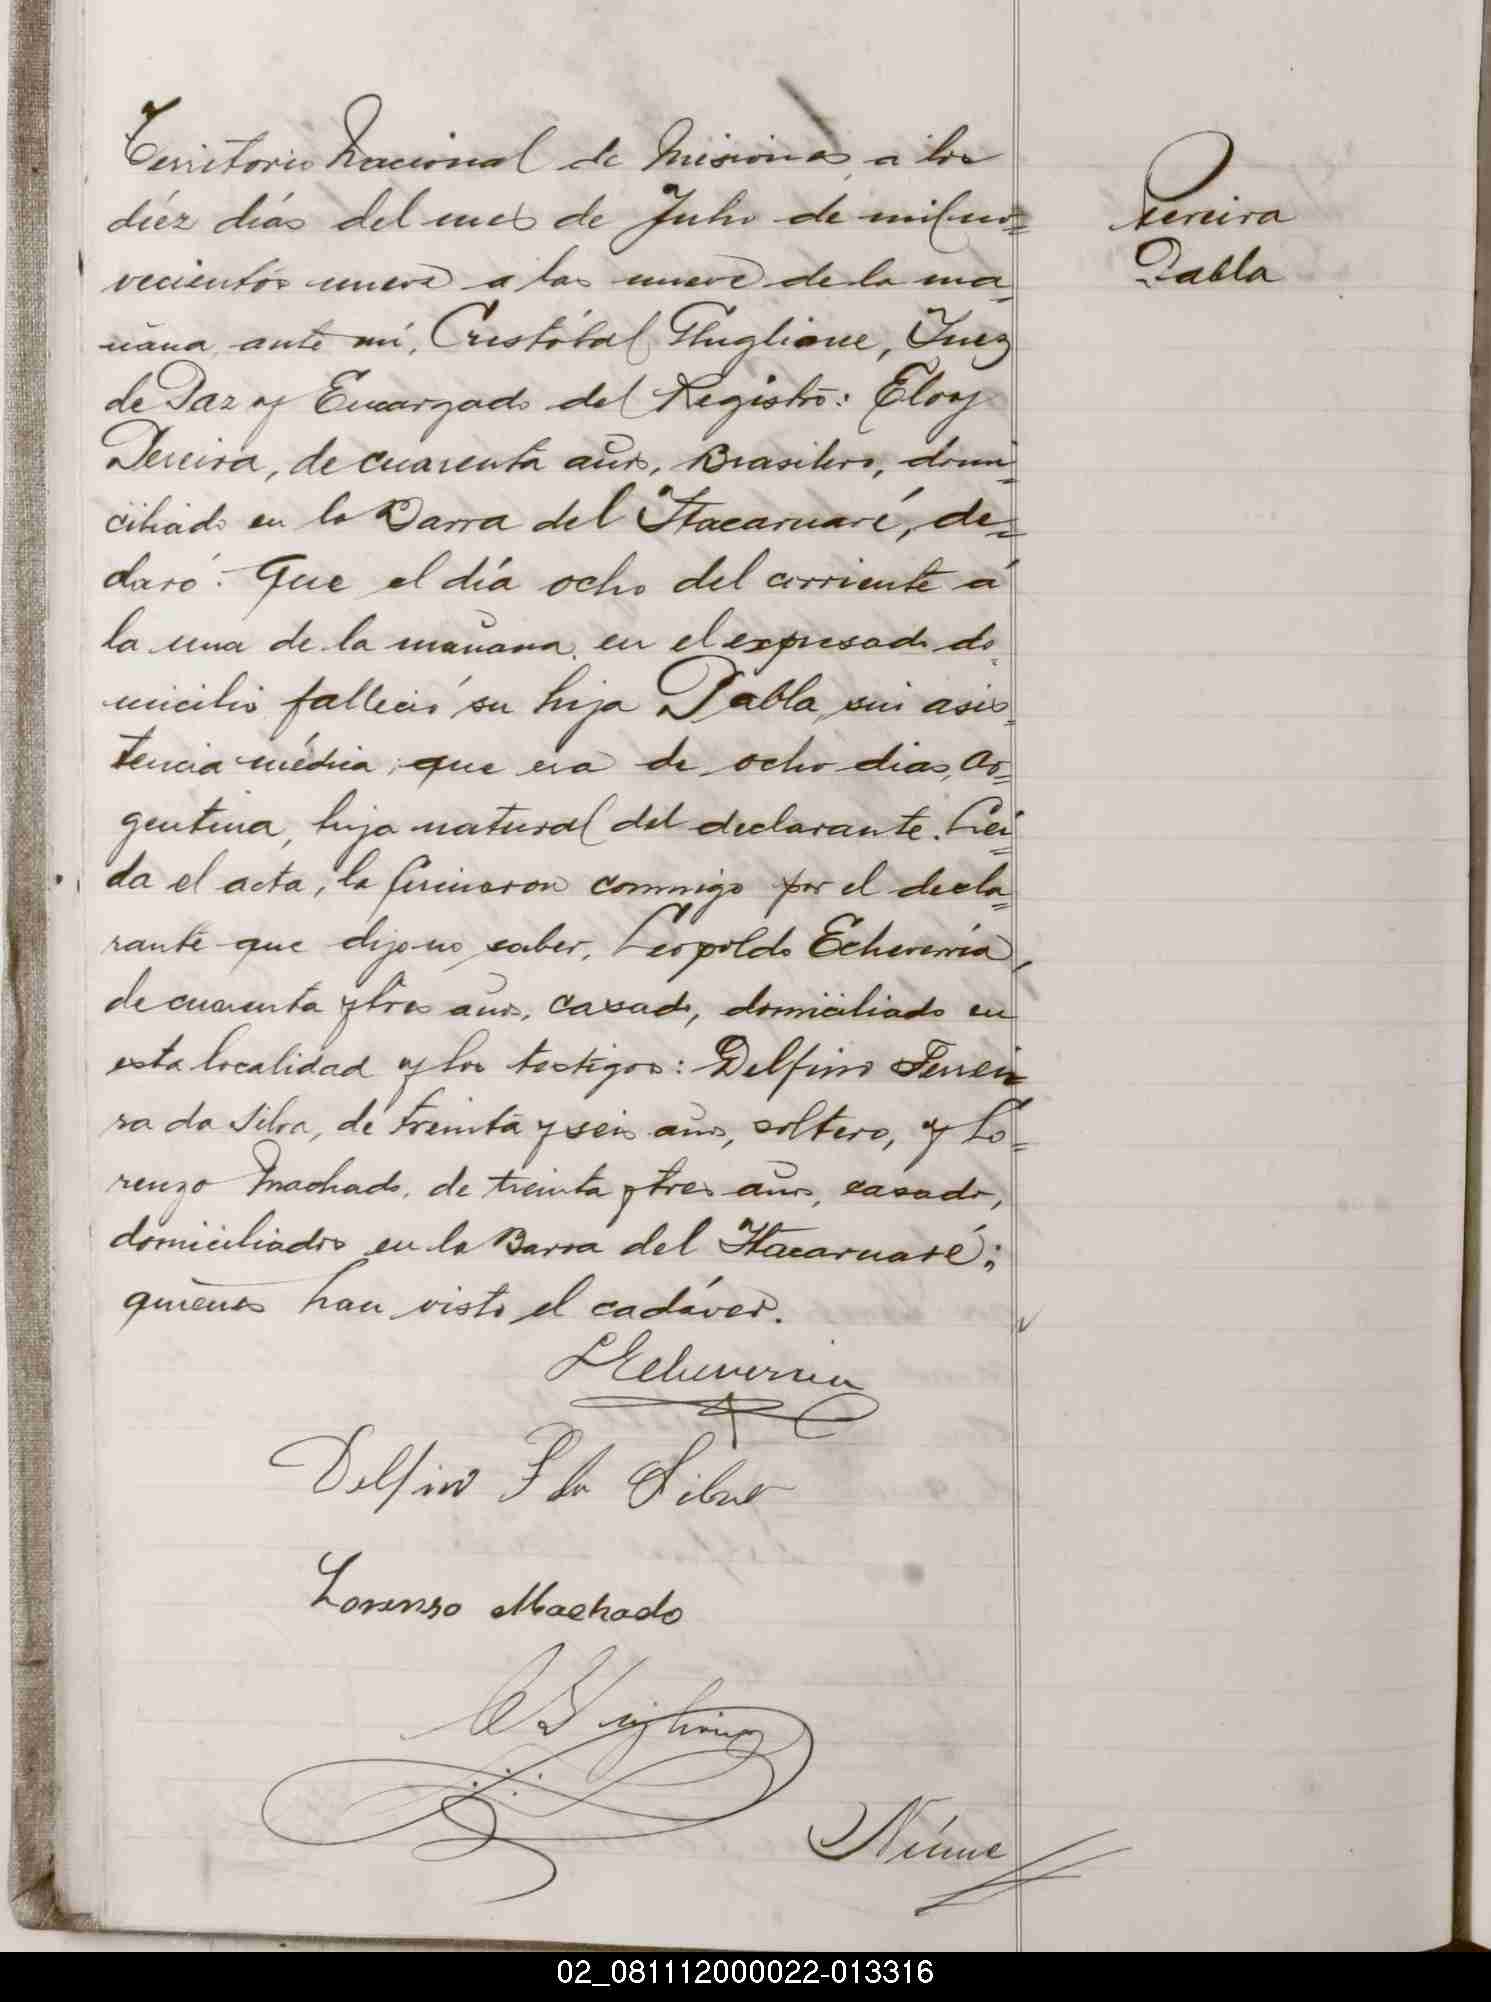 Territorio Nacional de Misiones, a los
diéz días del mes de Julio de mil no=
vecientos nueve a las nueve de la ma=
ñana, ante mí, Cristóbal Guglione, Juez
de Paz y Encargado del Registro: Eloy
Pereira, de cuarenta años, Brasilero, domi=
ciliado en la Barra del Itacaruaré, de=
claró: Que el día ocho del corriente á
la una de la mañana, en el expresado do=
micilio falleció su hija Pabla, sin asis=
tencia médica; que era de ocho dias, Ar=
gentina, hija natural del declarante. Lei=
da el acta, la firmaron conmigo por el decla=
rante que dijo no saber, Leopoldo Echeverría,
de cuarenta y tres años, casado, domiciliado en
esta localidad y los testigos: Delfino Ferrei=
ra da Silva, de treinta y seis años, soltero, y Lo=
renzo Machado, de treinta y tres años, casado,
domiciliados en la Barra del Itacaruaré;
quienes han visto el cadáver.
Pereira
Pabla
LEcheverria
Delfino F da Silva
Lorenzo Machado
02_081112000022-013316